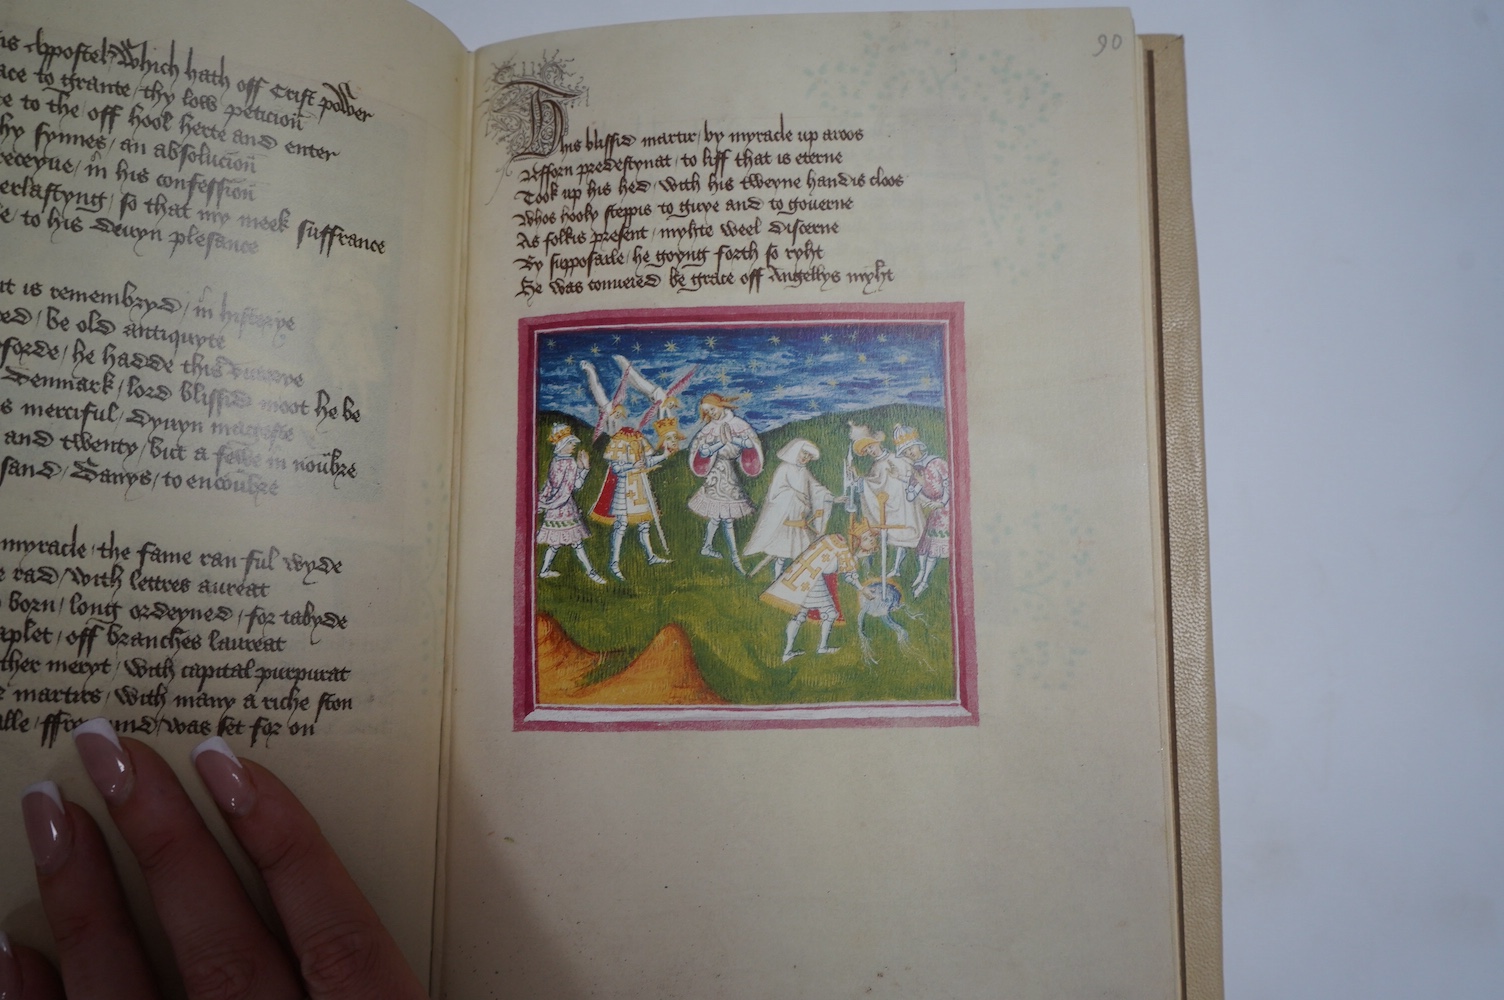 is Appostel which hath off Crist power
ace to grante thy low peticioun
te to the off hool herte and enter
hy synnes an absolucioun
receyue in his confessioun
erlastyng so that my meek suffrance
e to his devyn plesance
it is remembryd in historye
ed be old antiquyte
forde he hadde this
Denmark lord blissid moot he be
s merciful dyuyn mageste
and twenty but a fewe in noūbre
sand Danys to encoūbre
myracle the fame ran ful wyde
e rad with lettres aureat
born long ordeyned for tabyde
aplet off branches laureat
ther meryt with capital purpurat
martirs with many a riche ston
alle was set for on
90
This blissid martir / by myracle up aroos
Afforn predestynat / to liff that is eterne
Took up his hed / with his tweyne handis cloos
Whos hooly steppis to guye and to gouerne
As folkis present / myhte weel discerne
By supposaile / he goyng forth so ryht
He was conueied be grace off Angellys myht